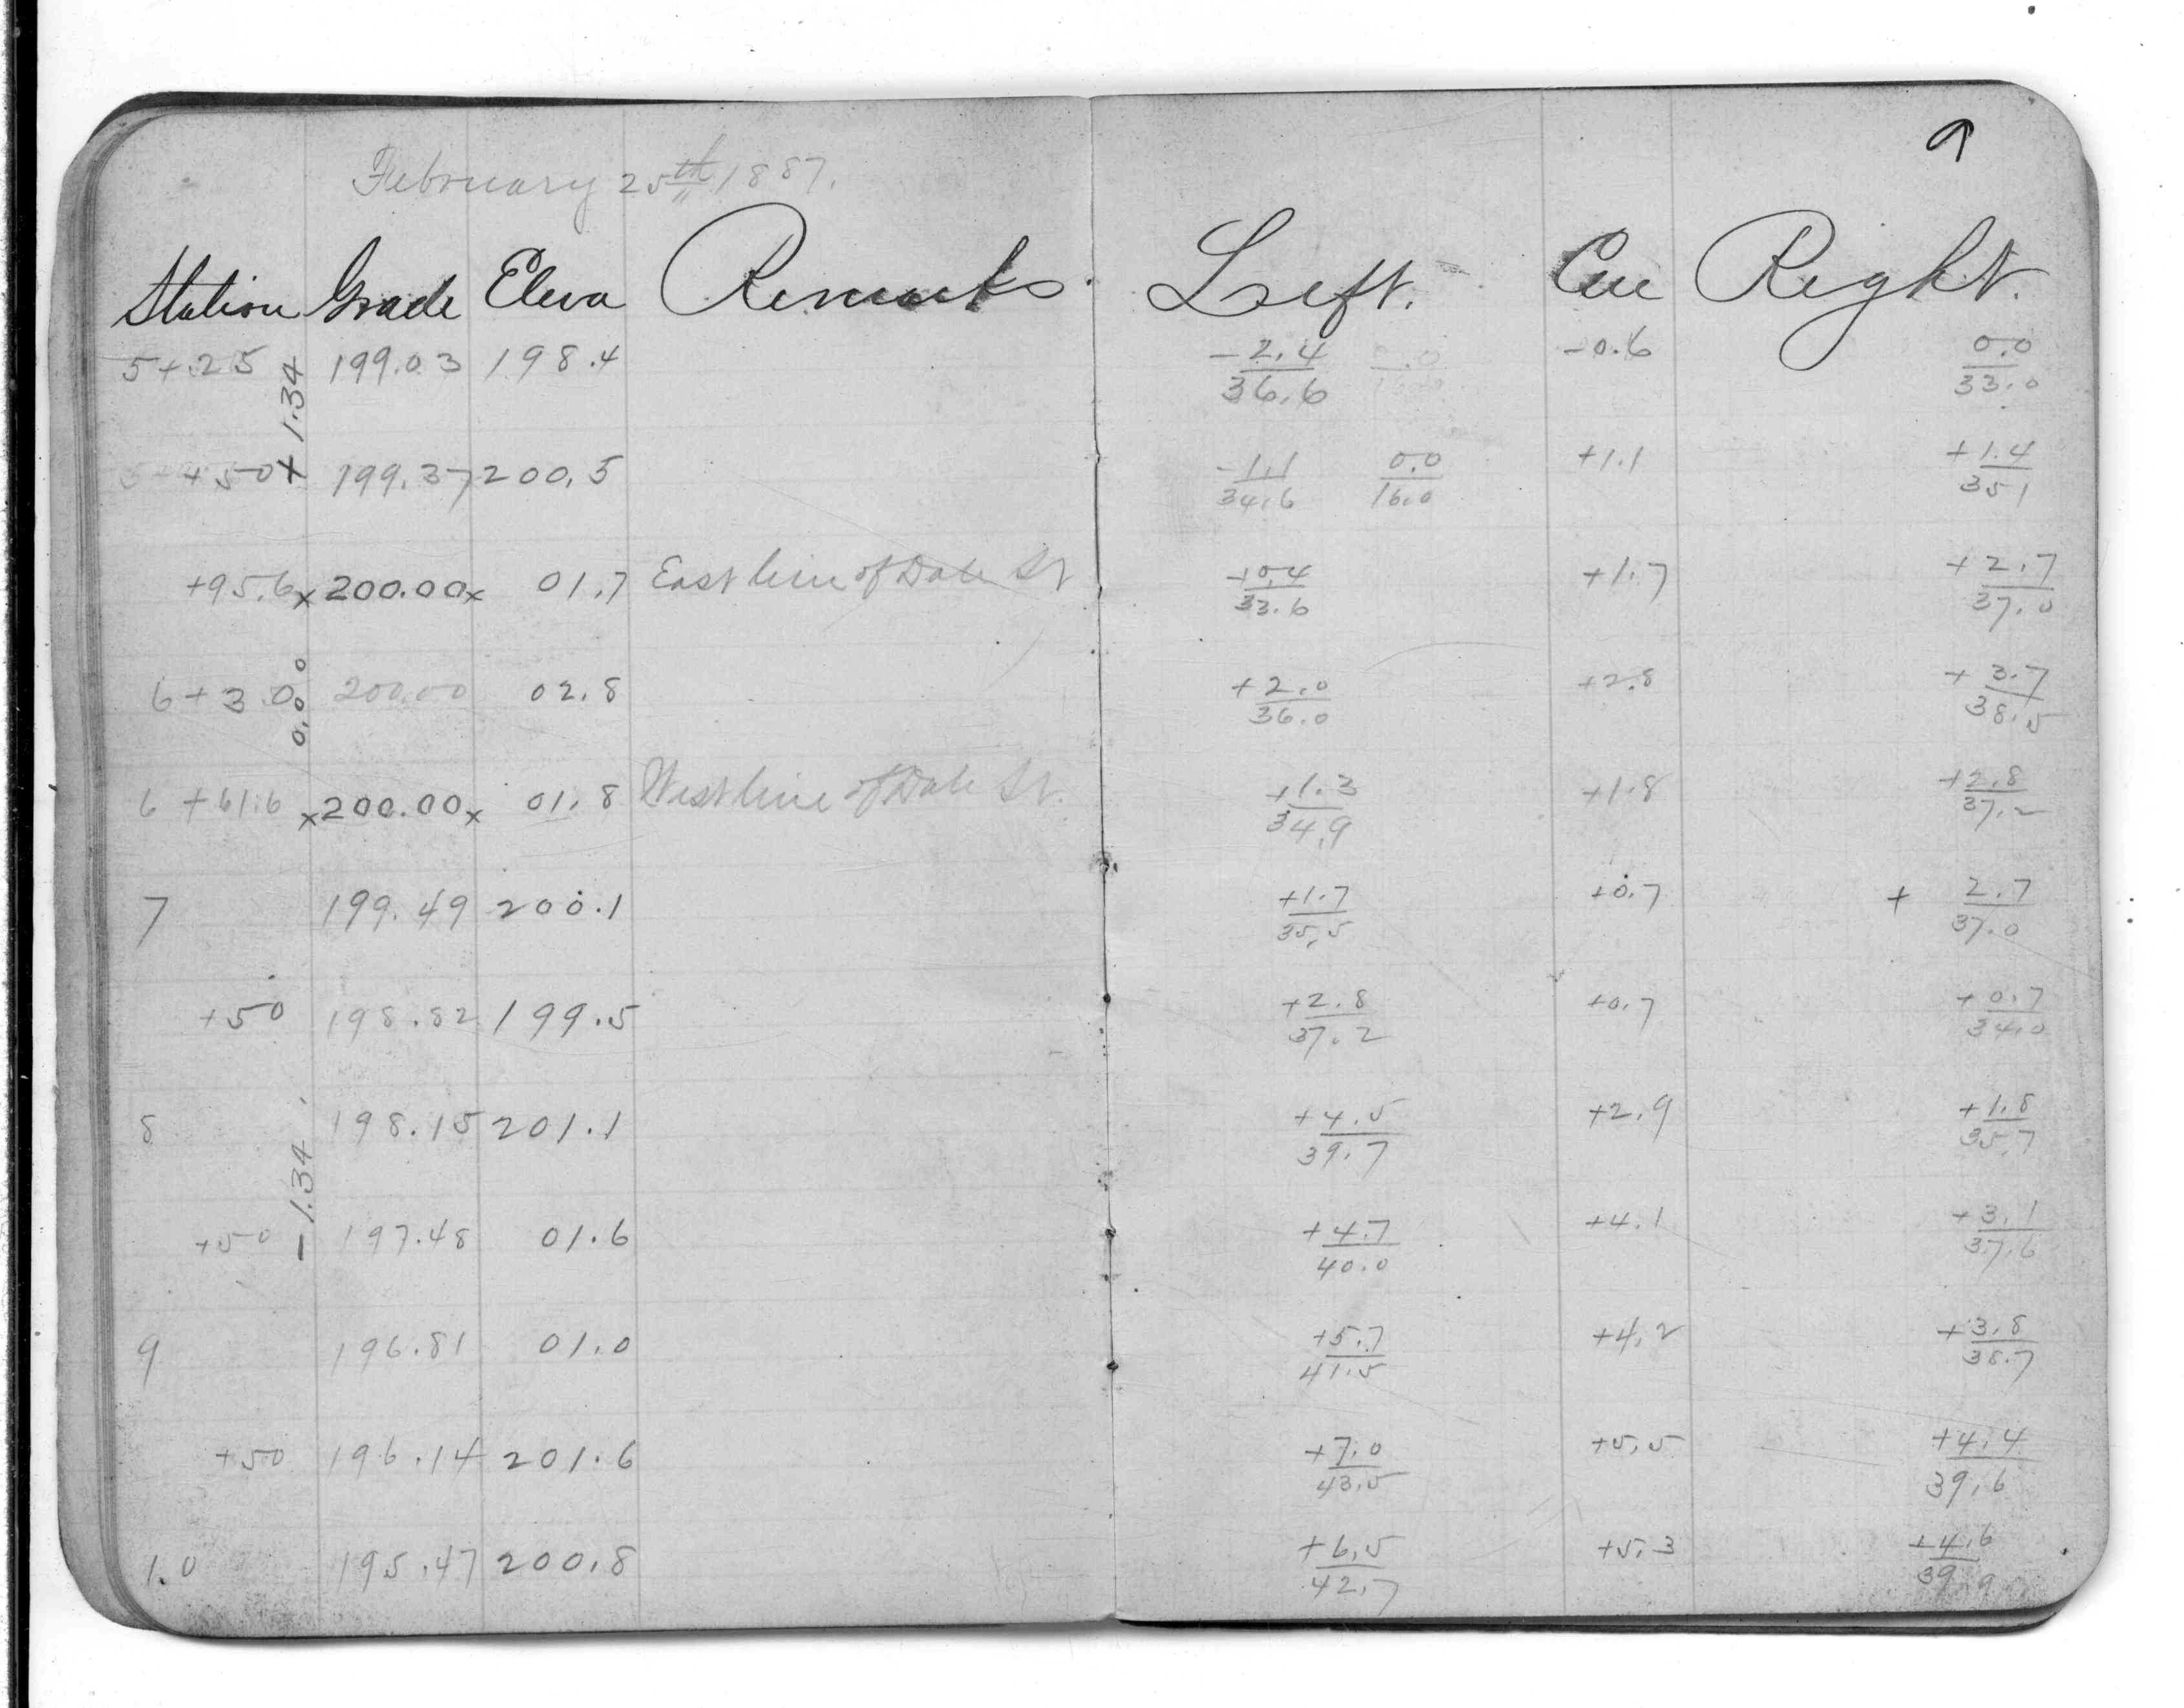 9
February 25th 1887.
Station Grade Eleva Remarks. Left. Cen Right.
5+25 199.03 198.4 -2.4/36.6 0.0/16.0 -0.6 0.0/33.0
+ 1.34
5+50 x 199.37 200.5 -1.1/34.6 0.0/16.0 +1.1 +1.4/35.1
+95.6 x 200.00 x 01.7 East line of Dale St +0.4/33.6 +1.7 +2.7/37.0
6+30 200.00 02.8 +2.0/36.0 +2.8 +3.7/38.5
0.00
6+61.6 x 200.00 x 01.8 West line of Dale St. +1.3/34.9 +1.8 +2.8/37.2
7 199.49 200.1 +1.7/35.5 +0.7 +2.7/37.0
+50 198.82 199.5 +2.8/37.2 +0.7 +0.7/34.0
8 198.15 201.1 +4.5/39.7 +2.9 +1.8/35.7
- 1.34
+50 197.48 01.6 +4.7/40.0 +4.1 +3.1/37.6
9 196.81 01.0 +5.7/41.5 +4.2 +3.8/38.7
+50 196.14 201.6 +7.0/43.5 +5.5 +4.4/39.6
10 195.47 200.8 +6.5/42.7 +5.3 +4.6/39.9